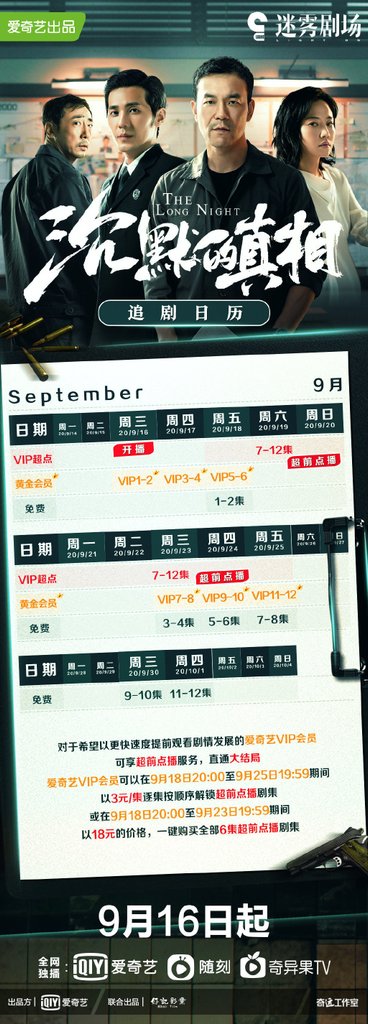 爱奇艺出品
迷雾剧场
LIGHT ON
THE
LONG NIGHT
沉默的真相
追剧日历
September 9月
日期 周一 20/9/14 周二 20/9/15 周三 20/9/16 周四 20/9/17 周五 20/9/18 周六 20/9/19 周日 20/9/20
VIP超点 开播 7-12集 超前点播
黄金会员 VIP1-2 VIP3-4 VIP5-6
免费 1-2集
日期 周一 20/9/21 周二 20/9/22 周三 20/9/23 周四 20/9/24 周五 20/9/25 周六 20/9/26 日 /27
VIP超点 7-12集 超前点播
黄金会员 VIP7-8 VIP9-10 VIP11-12
免费 3-4集 5-6集 7-8集
日期 周一 20/9/28 周二 20/9/29 周三 20/9/30 周四 20/10/1 周五 20/10/2 周六 20/10/3 周日 20/10/4
免费 9-10集 11-12集
对于希望以更快速度提前观看剧情发展的爱奇艺VIP会员
可享超前点播服务，直通大结局
爱奇艺VIP会员可以在9月18日20:00至9月25日19:59期间
以3元/集逐集按顺序解锁超前点播剧集
或在9月18日20:00至9月23日19:59期间
以18元的价格，一键购买全部6集超前点播剧集
9月16日起
全网独播： iQIYI 爱奇艺 随刻 奇异果TV
出品方 iQIYI 爱奇艺 联合出品 好记影业 奇遇工作室